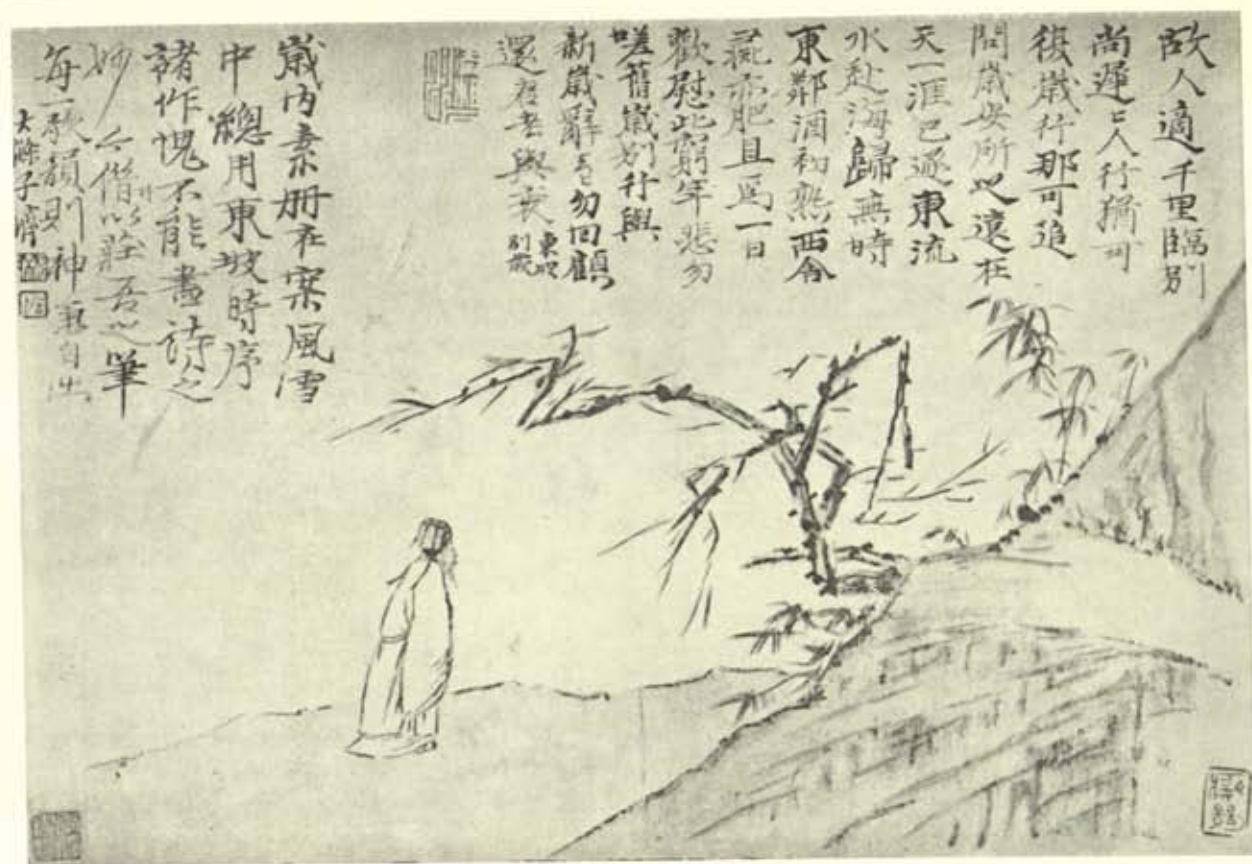 故人適千里臨別
尚遲〻人行猶可
復歲行那可追
問歲安所之遠在
天一涯已逐東流
水赴海歸無時
東鄰酒初熟西舍
彘亦肥且爲一日
歡慰此窮年悲勿
嗟舊歲別行與
新歲辭去〻勿回顧
還君老與衰 東坡別歲
歲內素册在案風雪
中總用東坡時序
諸作愧不能畫詩之
妙今借以莊吾之筆
每一歌韻則神氣自出
大滌子濟